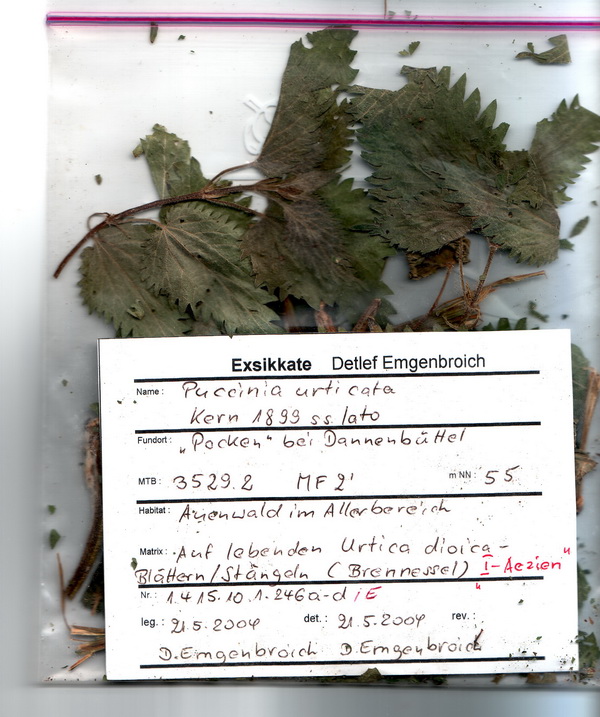 Exsikkate Detlef Emgenbroich
Name: Puccinia urticata
Kern 1899 ss. lato
Fundort: "Pocken" bei Dannenbüttel
MTB: 3529.2 MF 21 m NN: 55
Habitat: Auenwald im Allerbereich
Matrix: Auf lebenden Urtica dioica-
Blättern/Stängeln (Brennessel) "I-Aezien"
Nr.: 1.415.10.1.246a-d iE
leg.: 21.5.2004 det.: 21.5.2004 rev.:
D.Emgenbroich D.Emgenbroich